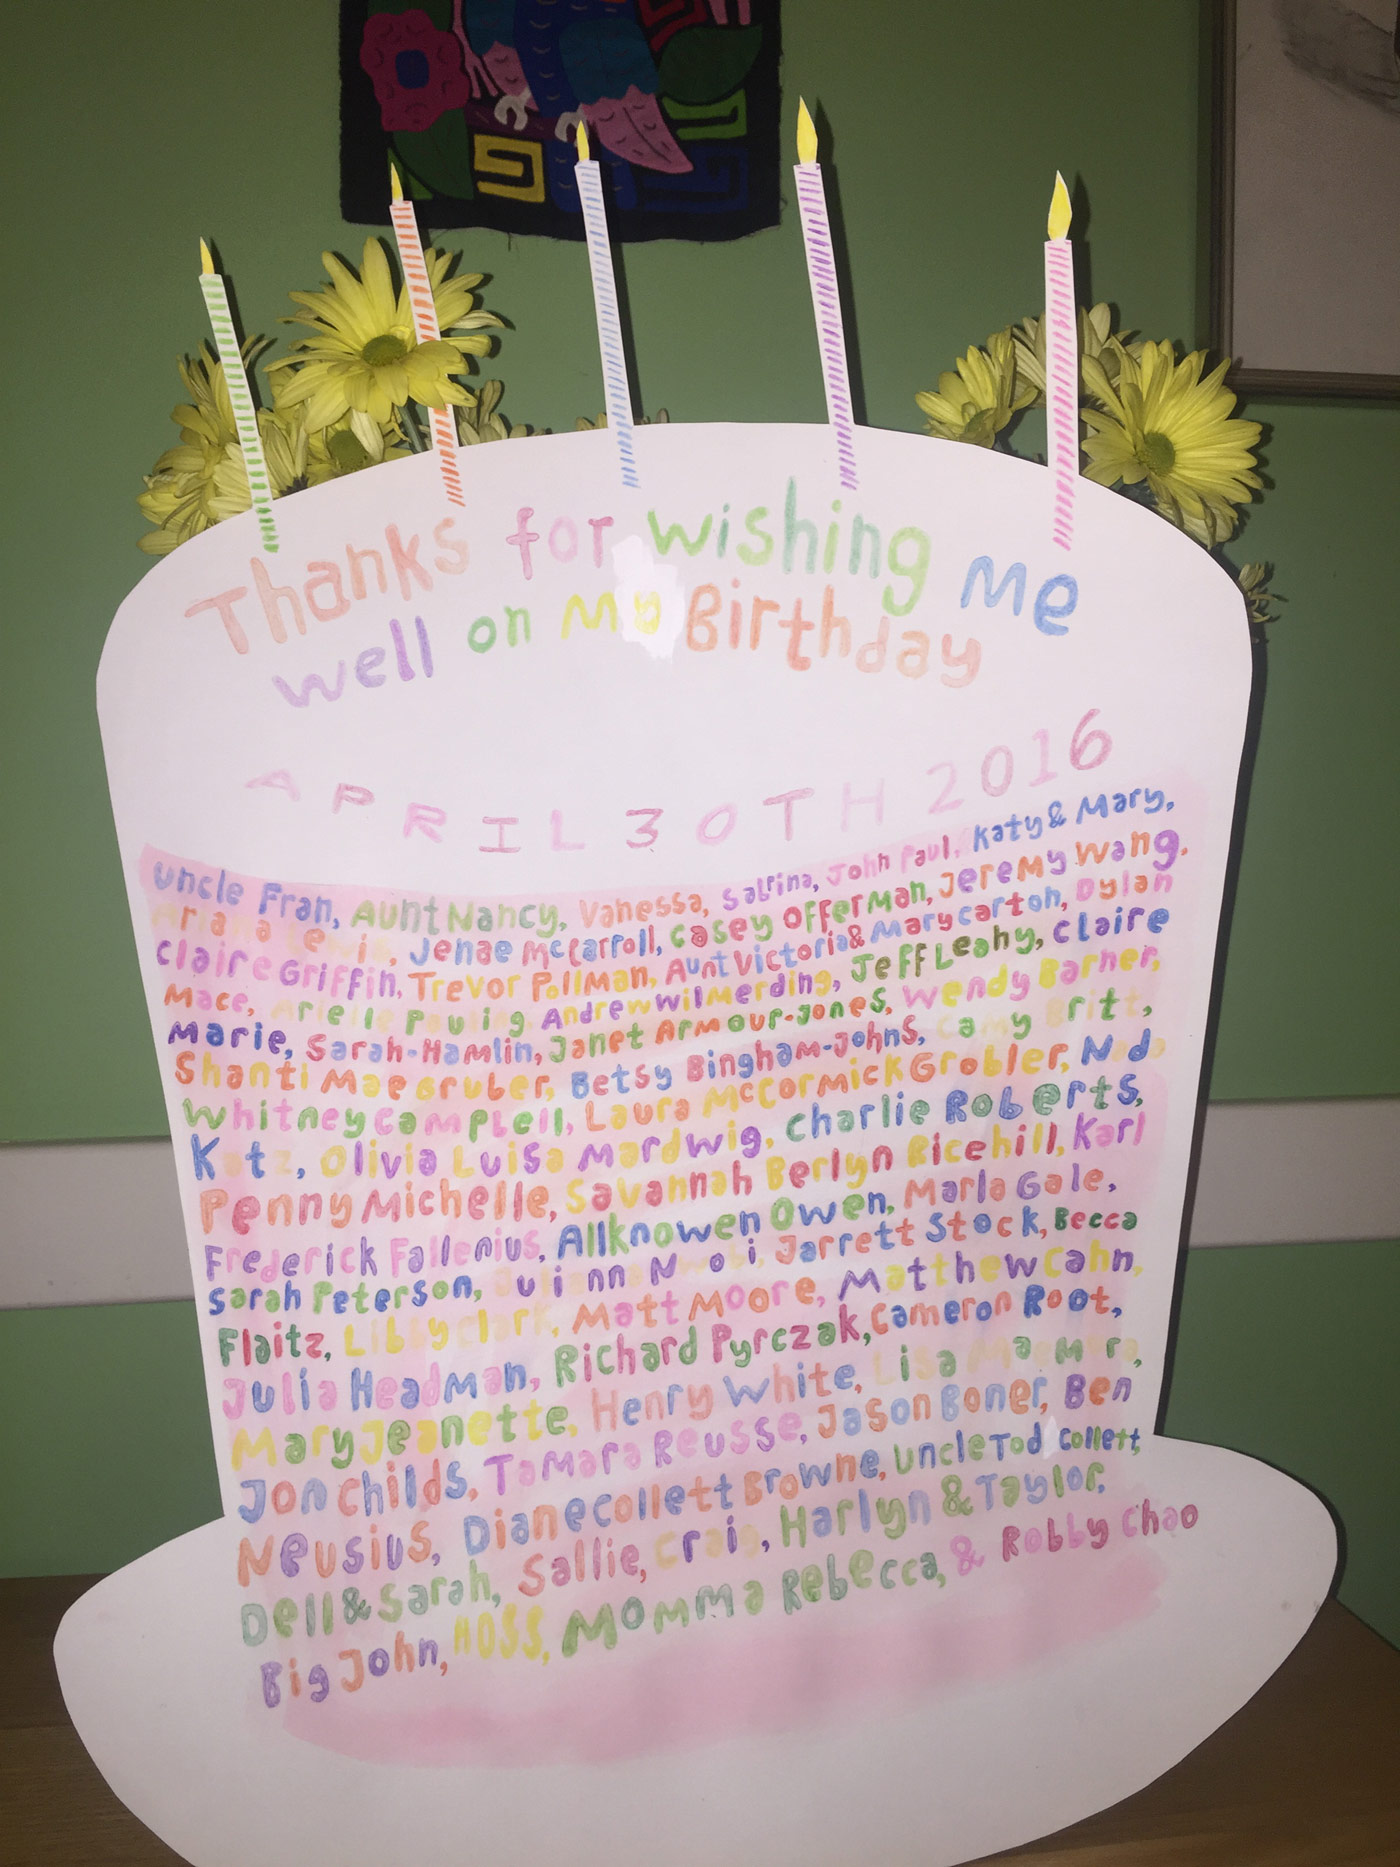 Thanks for wishing me
well on my Birthday
APRIL 30TH 2016
Uncle Fran, Aunt Nancy, Vanessa, Sabrina, John Paul, Katy & Mary,
Jenae McCarroll, Casey Offerman, Jeremy Wang,
Claire Griffin, Trevor Pollman, Aunt Victoria & Mary Carton, Dylan
Mace, Arielle Andrew Wilmerding, Jeff Leahy, Claire
Marie, Sarah-Hamlin, Janet Armour-Jones, Wendy Barner,
Shanti Mae Gruber, Betsy Bingham-Johns, Britt,
Whitney Campbell, Laura McCormick Grobler,
Katz, Olivia Luisa Mardwig, Charlie Roberts,
Penny Michelle, Savannah Berlyn Ricehill, Karl
Frederick Fallenius, Allknowen Owen, Marla Gale,
Sarah Peterson, Jarrett Stock, Becca
Flaitz, Libby Clark, Matt Moore, Matthew Cahn,
Julia Headman, Richard Pyrczak, Cameron Root,
Mary Jeanette, Henry White, Lisa
Jon Childs, Tamara Reusse, Jason Boner, Ben
Neusius, Diane Collett Browne, Uncle Tod Collett,
Dell & Sarah, Sallie, Craig, Harlyn & Taylor,
Big John, HOSS, Momma Rebecca, & Robby Chao